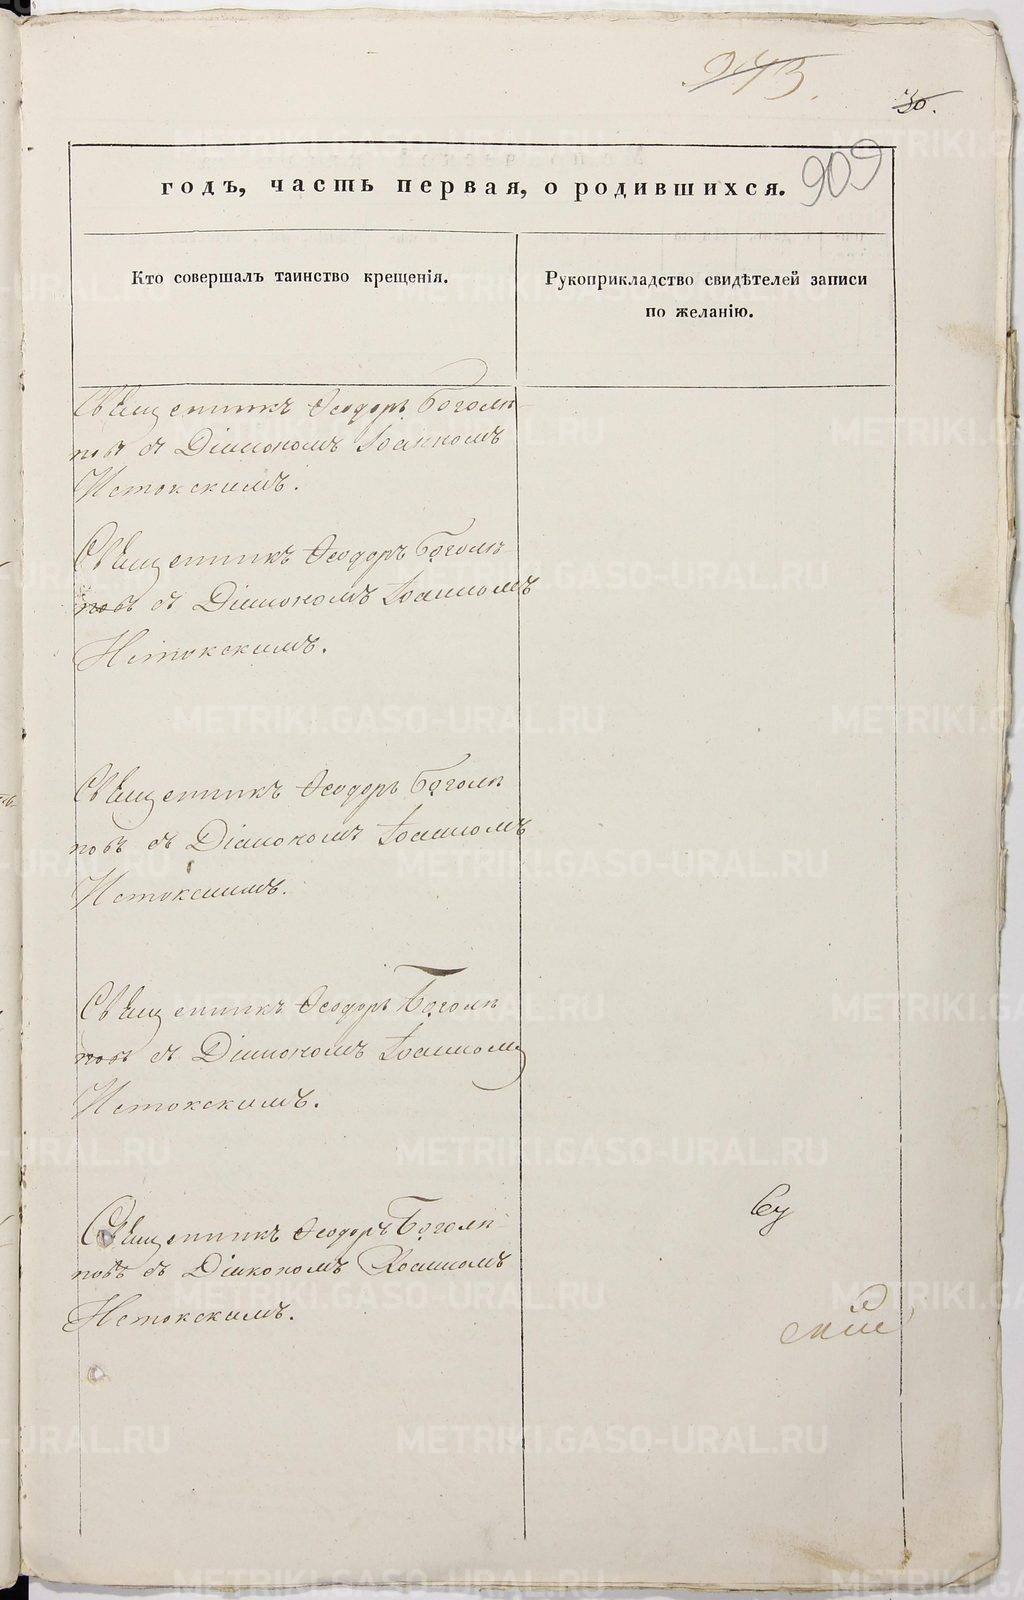 243.
30.
909
годъ, часть первая, о родившихся.
Кто совершалъ таинство крещенія.
Рукоприкладство свидѣтелей записи
по желанію.
Священникъ Ѳеодоръ Боголѣ
повъ съ Діакономъ Іоанномъ
Истокскимъ.
Священникъ Ѳеодоръ Боголѣ
повъ съ Діакономъ Іоанномъ
Истокскимъ.
Священникъ Ѳеодоръ Боголѣ
повъ съ Діакономъ Іоанномъ
Истокскимъ.
Священникъ Ѳеодоръ Боголѣ
повъ съ Діакономъ Іоанномъ
Истокскимъ.
Священникъ Ѳеодоръ Боголѣ
повъ съ Діакономъ Іоанномъ
Истокскимъ.
METRIKI.GASO-URAL.RU